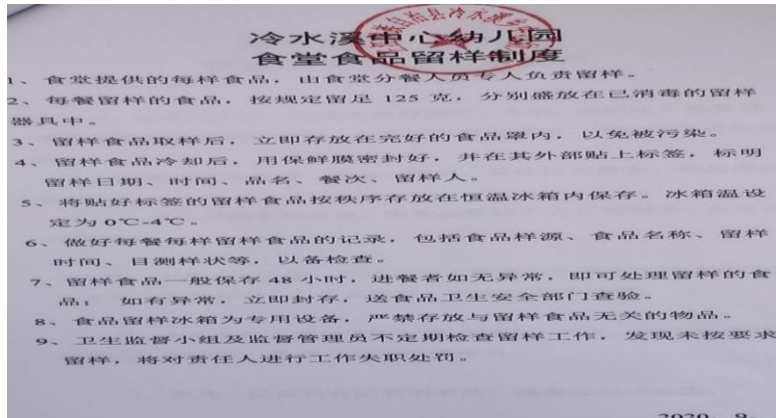 冷水溪中心幼儿园
食堂食品留样制度
1、食堂提供的每样食品，由食堂分餐人员专人负责留样。
2、每餐留样的食品，按规定留足 125 克，分别盛放在已消毒的留样
器具中。
3、留样食品取样后，立即存放在完好的食品罩内，以免被污染。
4、留样食品冷却后，用保鲜膜密封好，并在其外部贴上标签，标明
留样日期、时间、品名、餐次、留样人。
5、将贴好标签的留样食品按秩序存放在恒温冰箱内保存。冰箱温设
定为 0℃-4℃。
6、做好每餐每样留样食品的记录，包括食品样源、食品名称、留样
时间、目测样状等，以备检查。
7、留样食品一般保存 48 小时，进餐者如无异常，即可处理留样的食
品；如有异常，立即封存，送食品卫生安全部门查验。
8、食品留样冰箱为专用设备，严禁存放与留样食品无关的物品。
9、卫生监督小组及监督管理员不定期检查留样工作，发现未按要求
留样，将对责任人进行工作失职处罚。
2020、9、